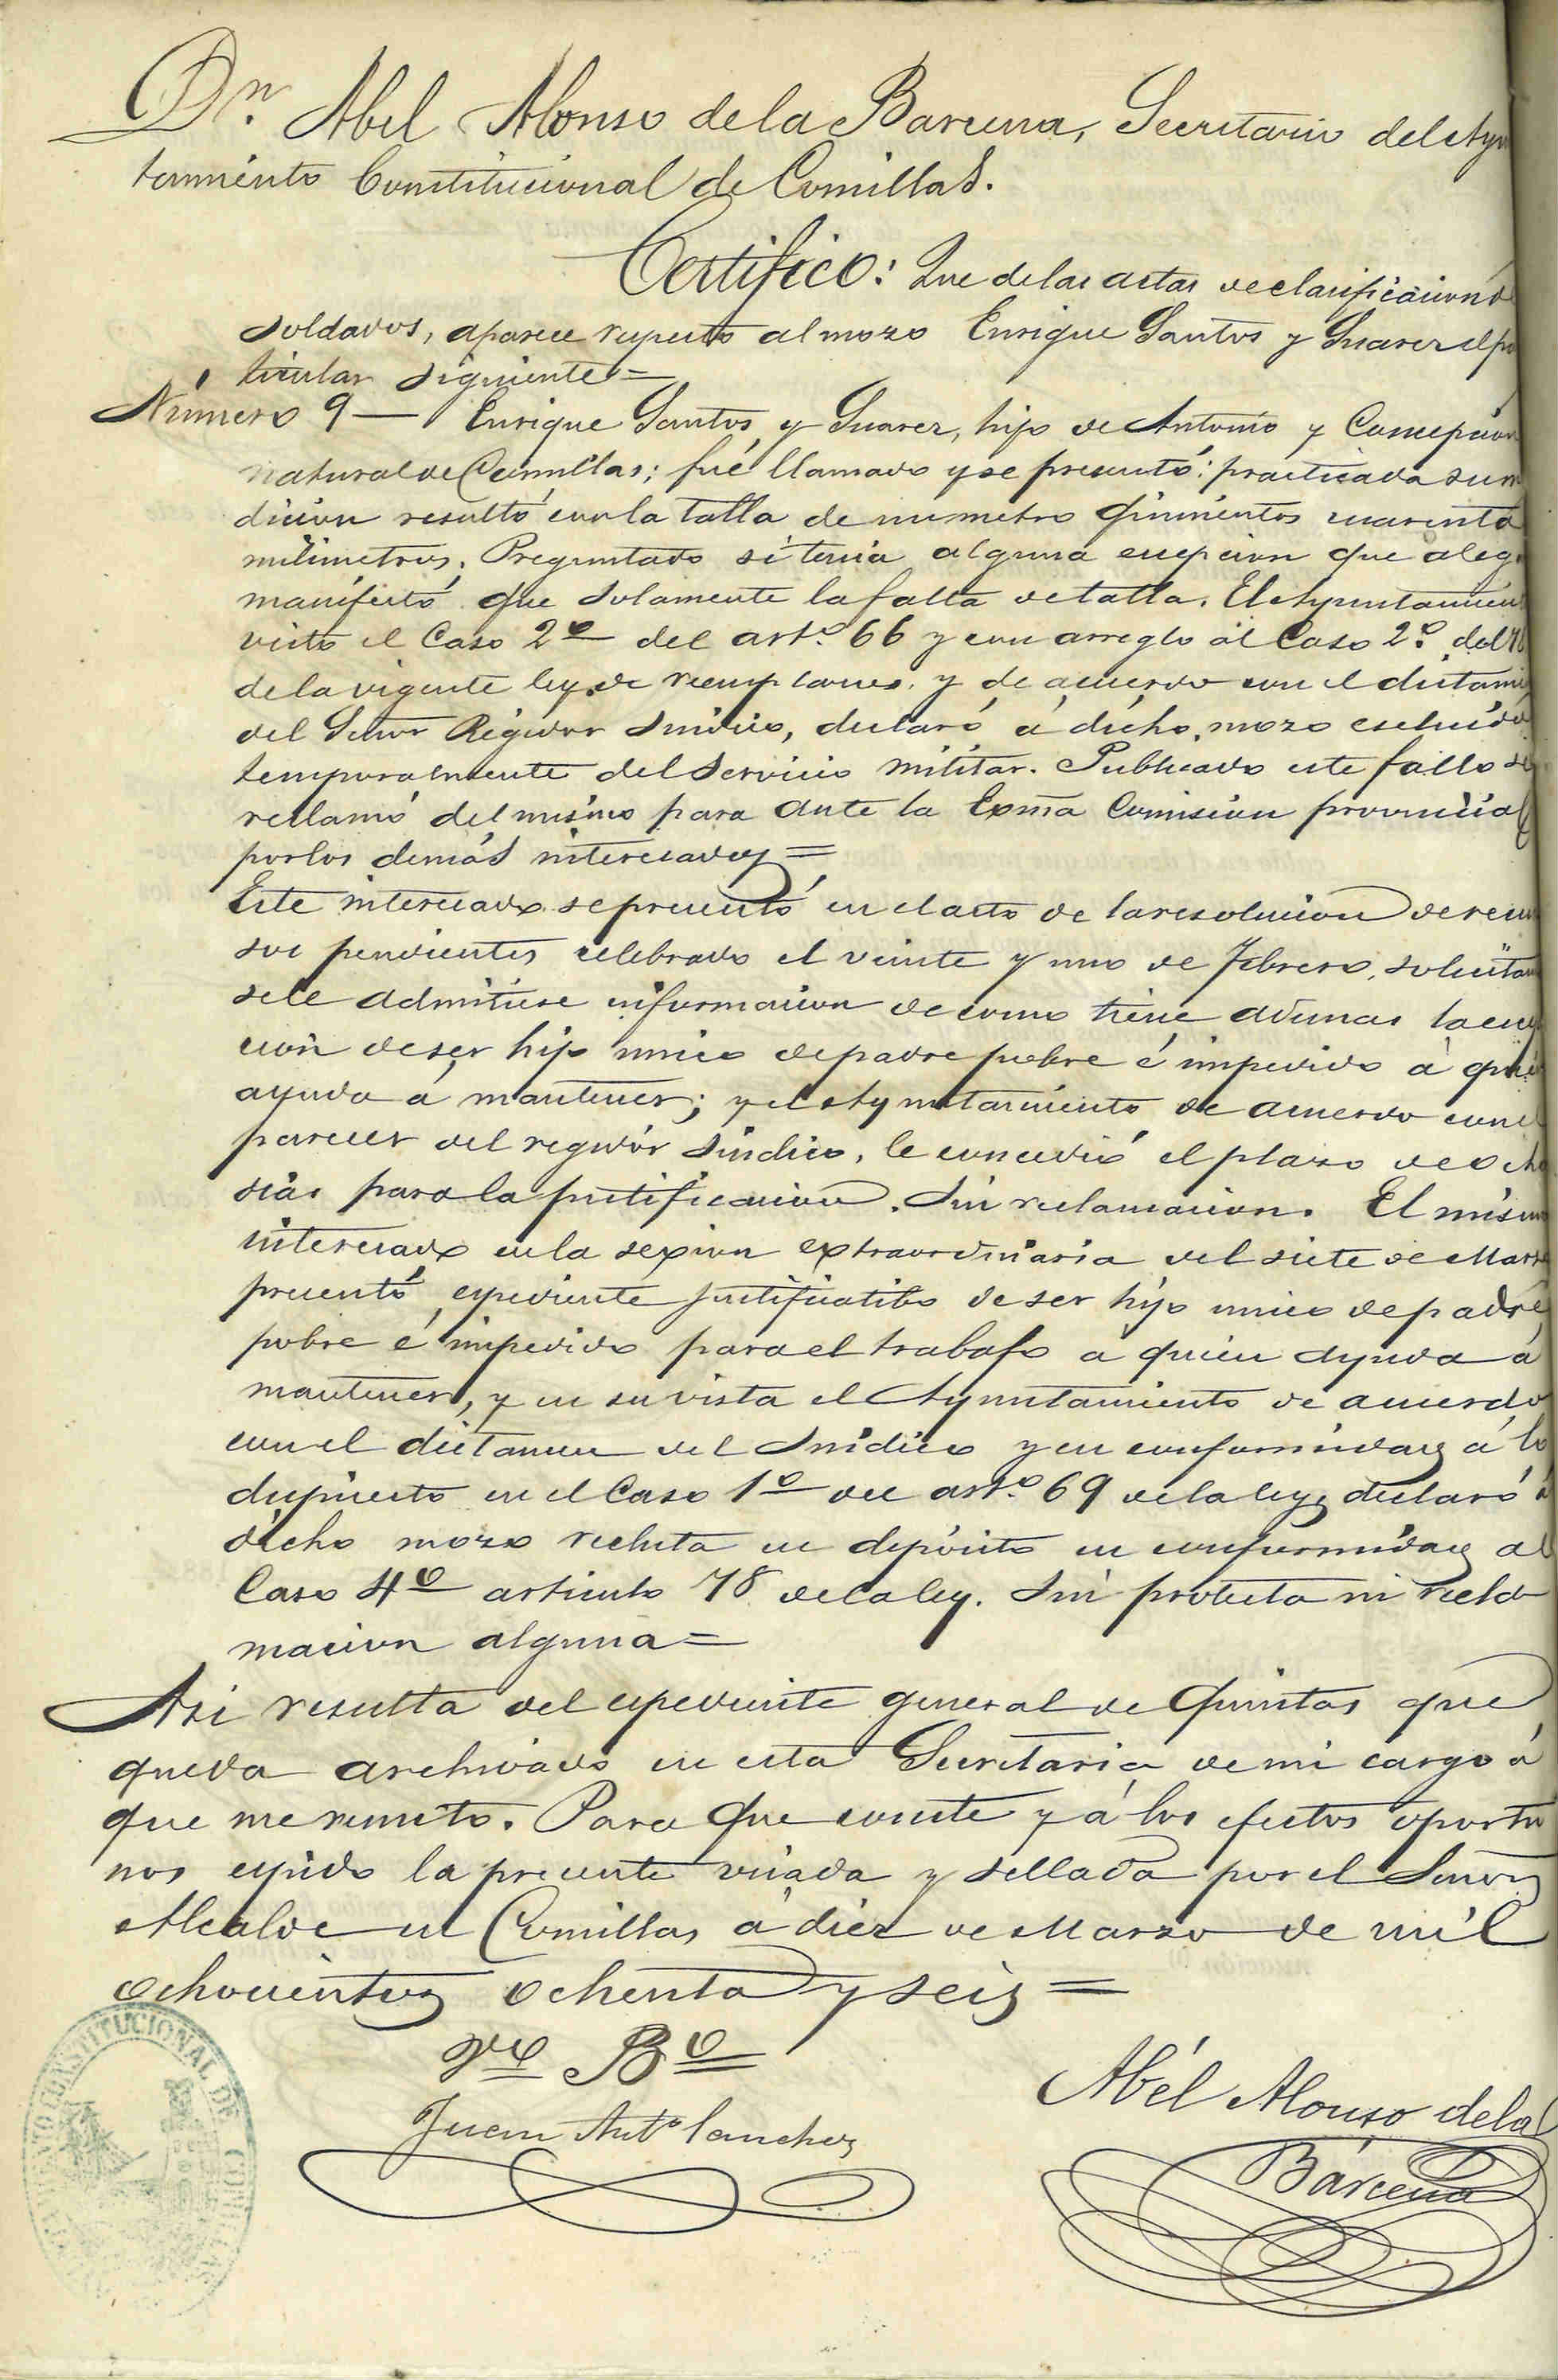 Dn. Abel Alonso de la Barcena, Secretario del Ayun
tamiento Constitucional de Comillas.
Certifico: Que de las actas de clasificacion de
soldados, aparece respecto al mozo Enrique Santos y Suarez el par
ticular siguiente=
Número 9— Enrique Santos y Suarez, hijo de Antonio y Concepcion
natural de Comillas; fué llamado y se presentó: practicada su me
dicion resultó con la talla de un metro quinientos cuarenta
milimetros. Preguntado si tenia alguna escepcion que alegar
manifestó que solamente la falta de talla. El Ayuntamiento
visto el Caso 2º del artº. 66 y con arreglo al Caso 2º. del 78
de la vigente ley de reemplazos. y de acuerdo con el dictamen
del Señor Regidor Sindico, declaró á dicho mozo escluido
temporalmente del servicio militar. Publicado este fallo se
reclamó del mismo para ante la Exma Comision provincial
por los demás interesados=
Este interesado se presentó en el acto de la resolucion de recur
sos pendientes celebrado el veinte y uno de Febrero, solicitan
se le admitiese informacion de como tiene ademas la escep
cion de ser hijo unico de padre pobre é impedido á quien
ayuda á mantener; y el Ayuntamiento de acuerdo con el
parecer del regidor Sindico, le concedió el plazo de ocho
dias para la justificacion. Sin reclamacion. El mismo
interesado en la sexion extraordinaria del siete de Marzo
presentó espediente justificatibo de ser hijo unico de padre
pobre é impedido para el trabajo á quien ayuda á
mantener, y en su vista el Ayuntamiento de acuerdo
con el dictamen del Sindico y en conformidad á lo
dispuesto en el Caso 1º del artº. 69 de la ley, declaró á
dicho mozo recluta en depósito en conformidad al
Caso 4º articulo 78 de la ley. Sin protesta ni recla
macion alguna=
Asi resulta del espediente general de Quintas que
queda archivado en esta Secretaria de mi cargo á
que me remito. Para que conste y á los efectos oportu
nos espido la presente visada y sellada por el Señor
Alcalde en Comillas á diez de Marzo de mil
ochocientos ochenta y seis=
Vº Bº
Juan Antº Sanchez
Abél Alonso de la
Bárcena
AYUNTAMIENTO CONSTITUCIONAL DE COMILLAS